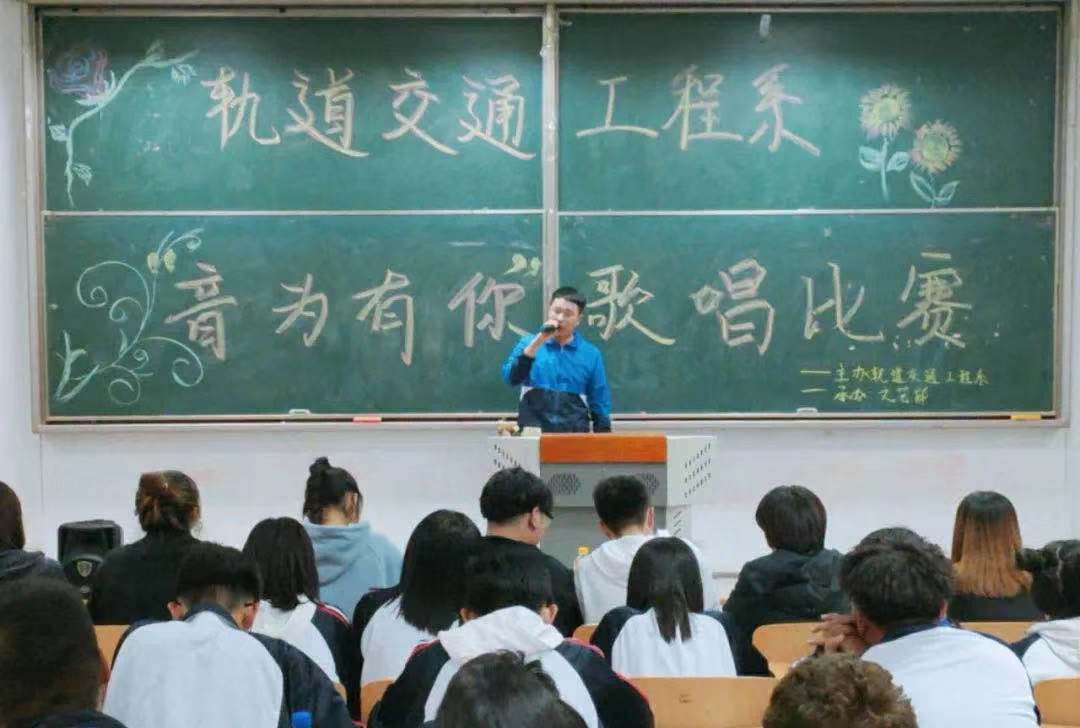 轨道交通工程系
音为有你”歌唱比赛
——主办轨道交通工程系
一承办 文艺部